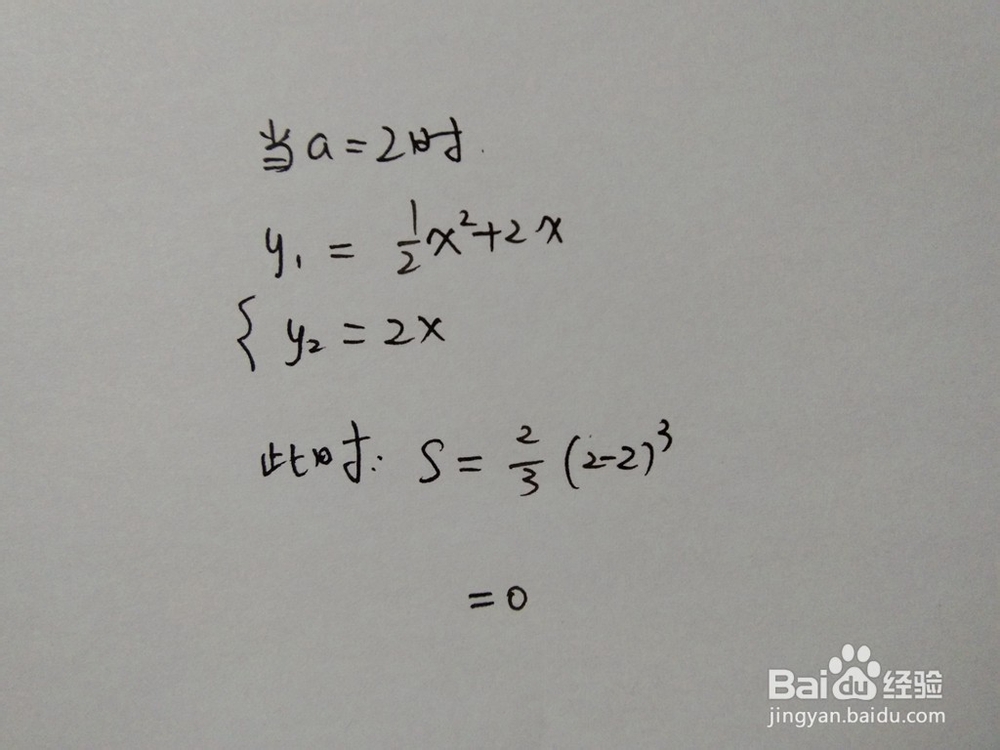 当a=2时.
y₁ = ½x²+2x
{ y₂ = 2x
此时: S = 2/3 (2-2)³
= 0
Baidu经验
jingyan.baidu.com